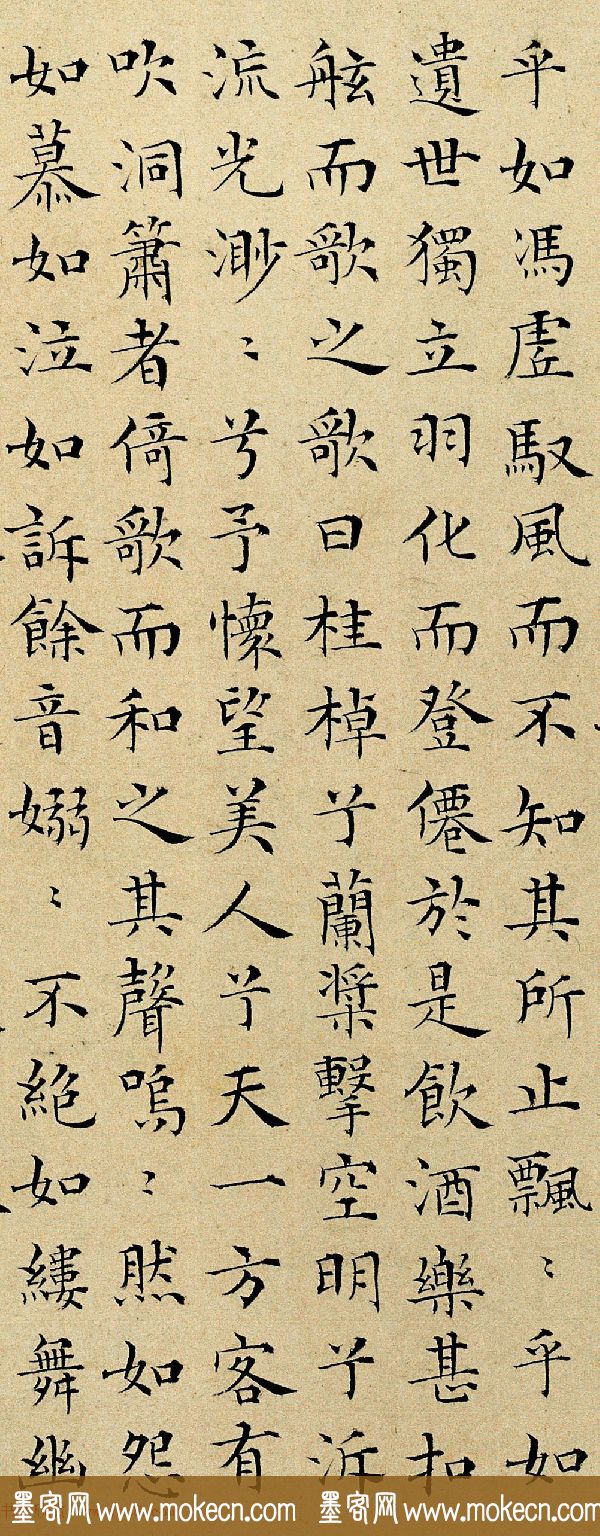 乎如馮虗馭風而不知其所止飄〻乎如
遺世獨立羽化而登僊於是飲酒樂甚扣
舷而歌之歌曰桂棹兮蘭槳擊空明兮泝
流光渺〻兮予懷望美人兮天一方客有
吹洞簫者倚歌而和之其聲嗚〻然如怨
如慕如泣如訴餘音嫋〻不絕如縷舞幽
墨客网 www.mokecn.com 墨客网 www.mokecn.com